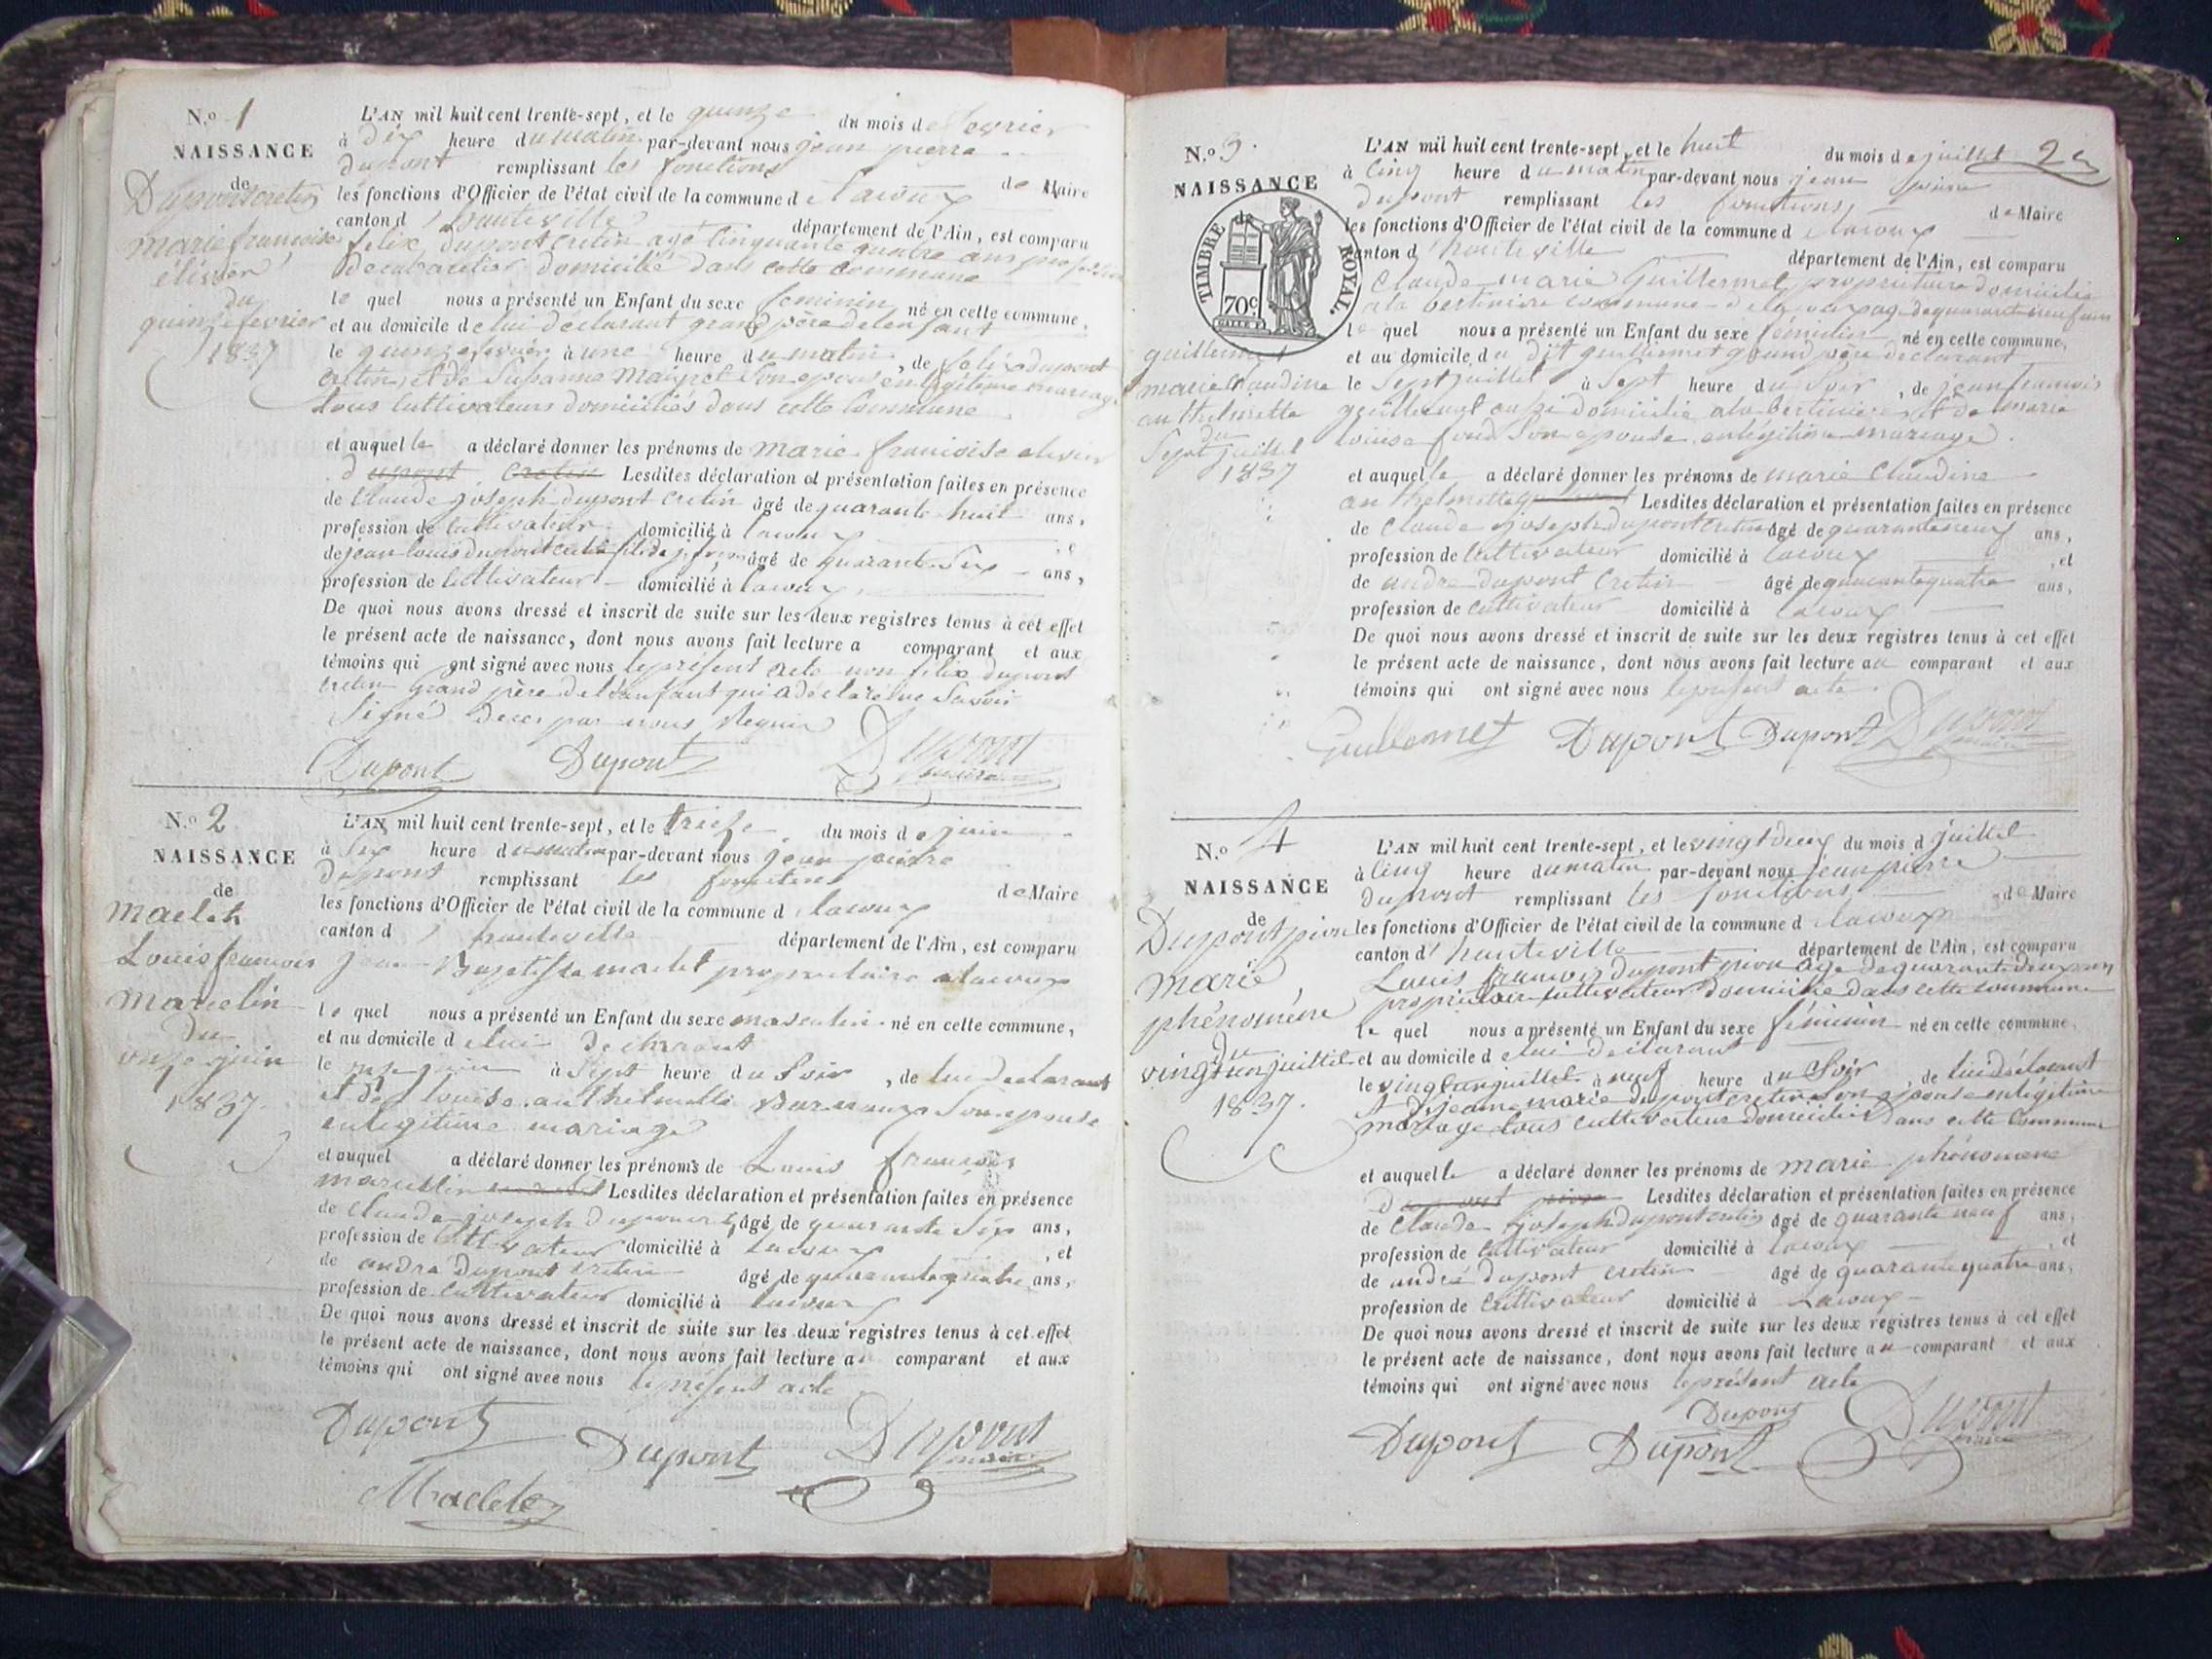 N.º 1
NAISSANCE
de
Dupont cretin
marie francoise
élisier
du
quinze fevrier
1837
L'AN mil huit cent trente-sept, et le quinze du mois de fevrier
à Dix heure du matin par-devant nous jean pierre
dupont remplissant les fonctions de Maire
les fonctions d'Officier de l'état civil de la commune de lacoux
canton d'hauteville département de l'Ain, est comparu
felix dupont cretin agé cinquante quatre ans
domicilié dans cette commune
le quel nous a présenté un Enfant du sexe feminin né en cette commune,
et au domicile de lui déclarant grand père de lenfant
le quinze fevrier à une heure du matin, de felix dupont
cretin et de Susanne Maigret Son epouse en légitime mariage
tous cultivateurs domiciliés dans cette Commune
et auquel le a déclaré donner les prénoms de marie francoise
dupont cretin Lesdites déclaration et présentation faites en présence
de Claude joseph dupont cretin âgé de quarante huit ans,
profession de cultivateur domicilié à lacoux, et
de jean louis dupont cretin fils de j. âgé de quarante Six ans,
profession de Cultivateur domicilié à lacoux
De quoi nous avons dressé et inscrit de suite sur les deux registres tenus à cet effet
le présent acte de naissance, dont nous avons fait lecture a comparant et aux
témoins qui ont signé avec nous le présent acte non felix dupont
cretin Grand père de lenfant qui a déclaré ne Savoir
Signé de ce par nous Requis
Dupont Dupont Dupont
maire
N.º 2
NAISSANCE
de
Maclet
Louis francois
Marcelin
du
onze juin
1837.
L'AN mil huit cent trente-sept, et le treize du mois de juin
à Six heure du matin par-devant nous jean pierre
Dupont remplissant les fonctions de Maire
les fonctions d'Officier de l'état civil de la commune de lacoux
canton d'hauteville département de l'Ain, est comparu
jean Baptiste maclet propriétaire a lacoux
le quel nous a présenté un Enfant du sexe masculin né en cette commune,
et au domicile de lui declarant
le onze juin à Sept heure du Soir, de lui declarant
et de louise anthelmette Son epouse
en légitime mariage
et auquel a déclaré donner les prénoms de Louis francois
marcellin maclet Lesdites déclaration et présentation faites en présence
de Claude joseph dupont âgé de quarante ans,
profession de cultivateur domicilié à lacoux, et
de andré dupont cretin âgé de quarante quatre ans,
profession de Cultivateur domicilié à lacoux
De quoi nous avons dressé et inscrit de suite sur les deux registres tenus à cet effet
le présent acte de naissance, dont nous avons fait lecture au comparant et aux
témoins qui ont signé avec nous le présent acte
Dupont Dupont Dupont
maire
Maclet
N.º 3.
NAISSANCE
de
TIMBRE ROYAL.
70c
guillermet
marie Claudine
anthelmette
du
Sept juillet
1837
L'AN mil huit cent trente-sept, et le huit du mois de juillet
à Cinq heure du matin par-devant nous jean pierre
dupont remplissant les fonctions de Maire
les fonctions d'Officier de l'état civil de la commune de lacoux
canton d'hauteville département de l'Ain, est comparu
Claude marie Guillermet propriétaire domicilié
a la bertiniere commune de agé de quarante neuf ans
le quel nous a présenté un Enfant du sexe féminin né en cette commune,
et au domicile du dit guillermet grand père declarant
le Sept juillet à Sept heure du Soir, de jean francois
guillermet aussi domicilié a la bertiniere et de marie
louise fond Son epouse en légitime mariage.
et auquel le a déclaré donner les prénoms de marie Claudine
anthelmette Lesdites déclaration et présentation faites en présence
de Claude joseph dupont cretin âgé de quarante neuf ans,
profession de Cultivateur domicilié à lacoux, et
de andré dupont Cretin âgé de quarante quatre ans,
profession de Cultivateur domicilié à lacoux
De quoi nous avons dressé et inscrit de suite sur les deux registres tenus à cet effet
le présent acte de naissance, dont nous avons fait lecture au comparant et aux
témoins qui ont signé avec nous le présent acte.
Guillermet Dupont Dupont Dupont
maire
N.º 4
NAISSANCE
de
Dupont pion
Marie
phénomène
du
vingt un juillet
1837.
L'AN mil huit cent trente-sept, et le vingt deux du mois d juillet
à Cinq heure du matin par-devant nous jean pierre
dupont remplissant les fonctions de Maire
les fonctions d'Officier de l'état civil de la commune de lacoux
canton d'hauteville département de l'Ain, est comparu
Louis francois dupont pion age de quarante deux ans
propriétaire cultivateur domicilié dans cette commune
le quel nous a présenté un Enfant du sexe féminin né en cette commune,
et au domicile de lui declarant
le vingt un juillet à neuf heure du Soir, de lui déclarant
et de jeanne marie dupont cretin Son epouse en légitime
mariage tous cultivateurs domiciliés dans cette Commune
et auquel le a déclaré donner les prénoms de marie phénomene
Dupont pion Lesdites déclaration et présentation faites en présence
de Claude joseph dupont cretin âgé de quarante neuf ans,
profession de Cultivateur domicilié à lacoux, et
de andré dupont cretin âgé de quarante quatre ans,
profession de Cultivateur domicilié à Lacoux
De quoi nous avons dressé et inscrit de suite sur les deux registres tenus à cet effet
le présent acte de naissance, dont nous avons fait lecture au comparant et aux
témoins qui ont signé avec nous le présent acte
Dupont
Dupont Dupont Dupont
maire